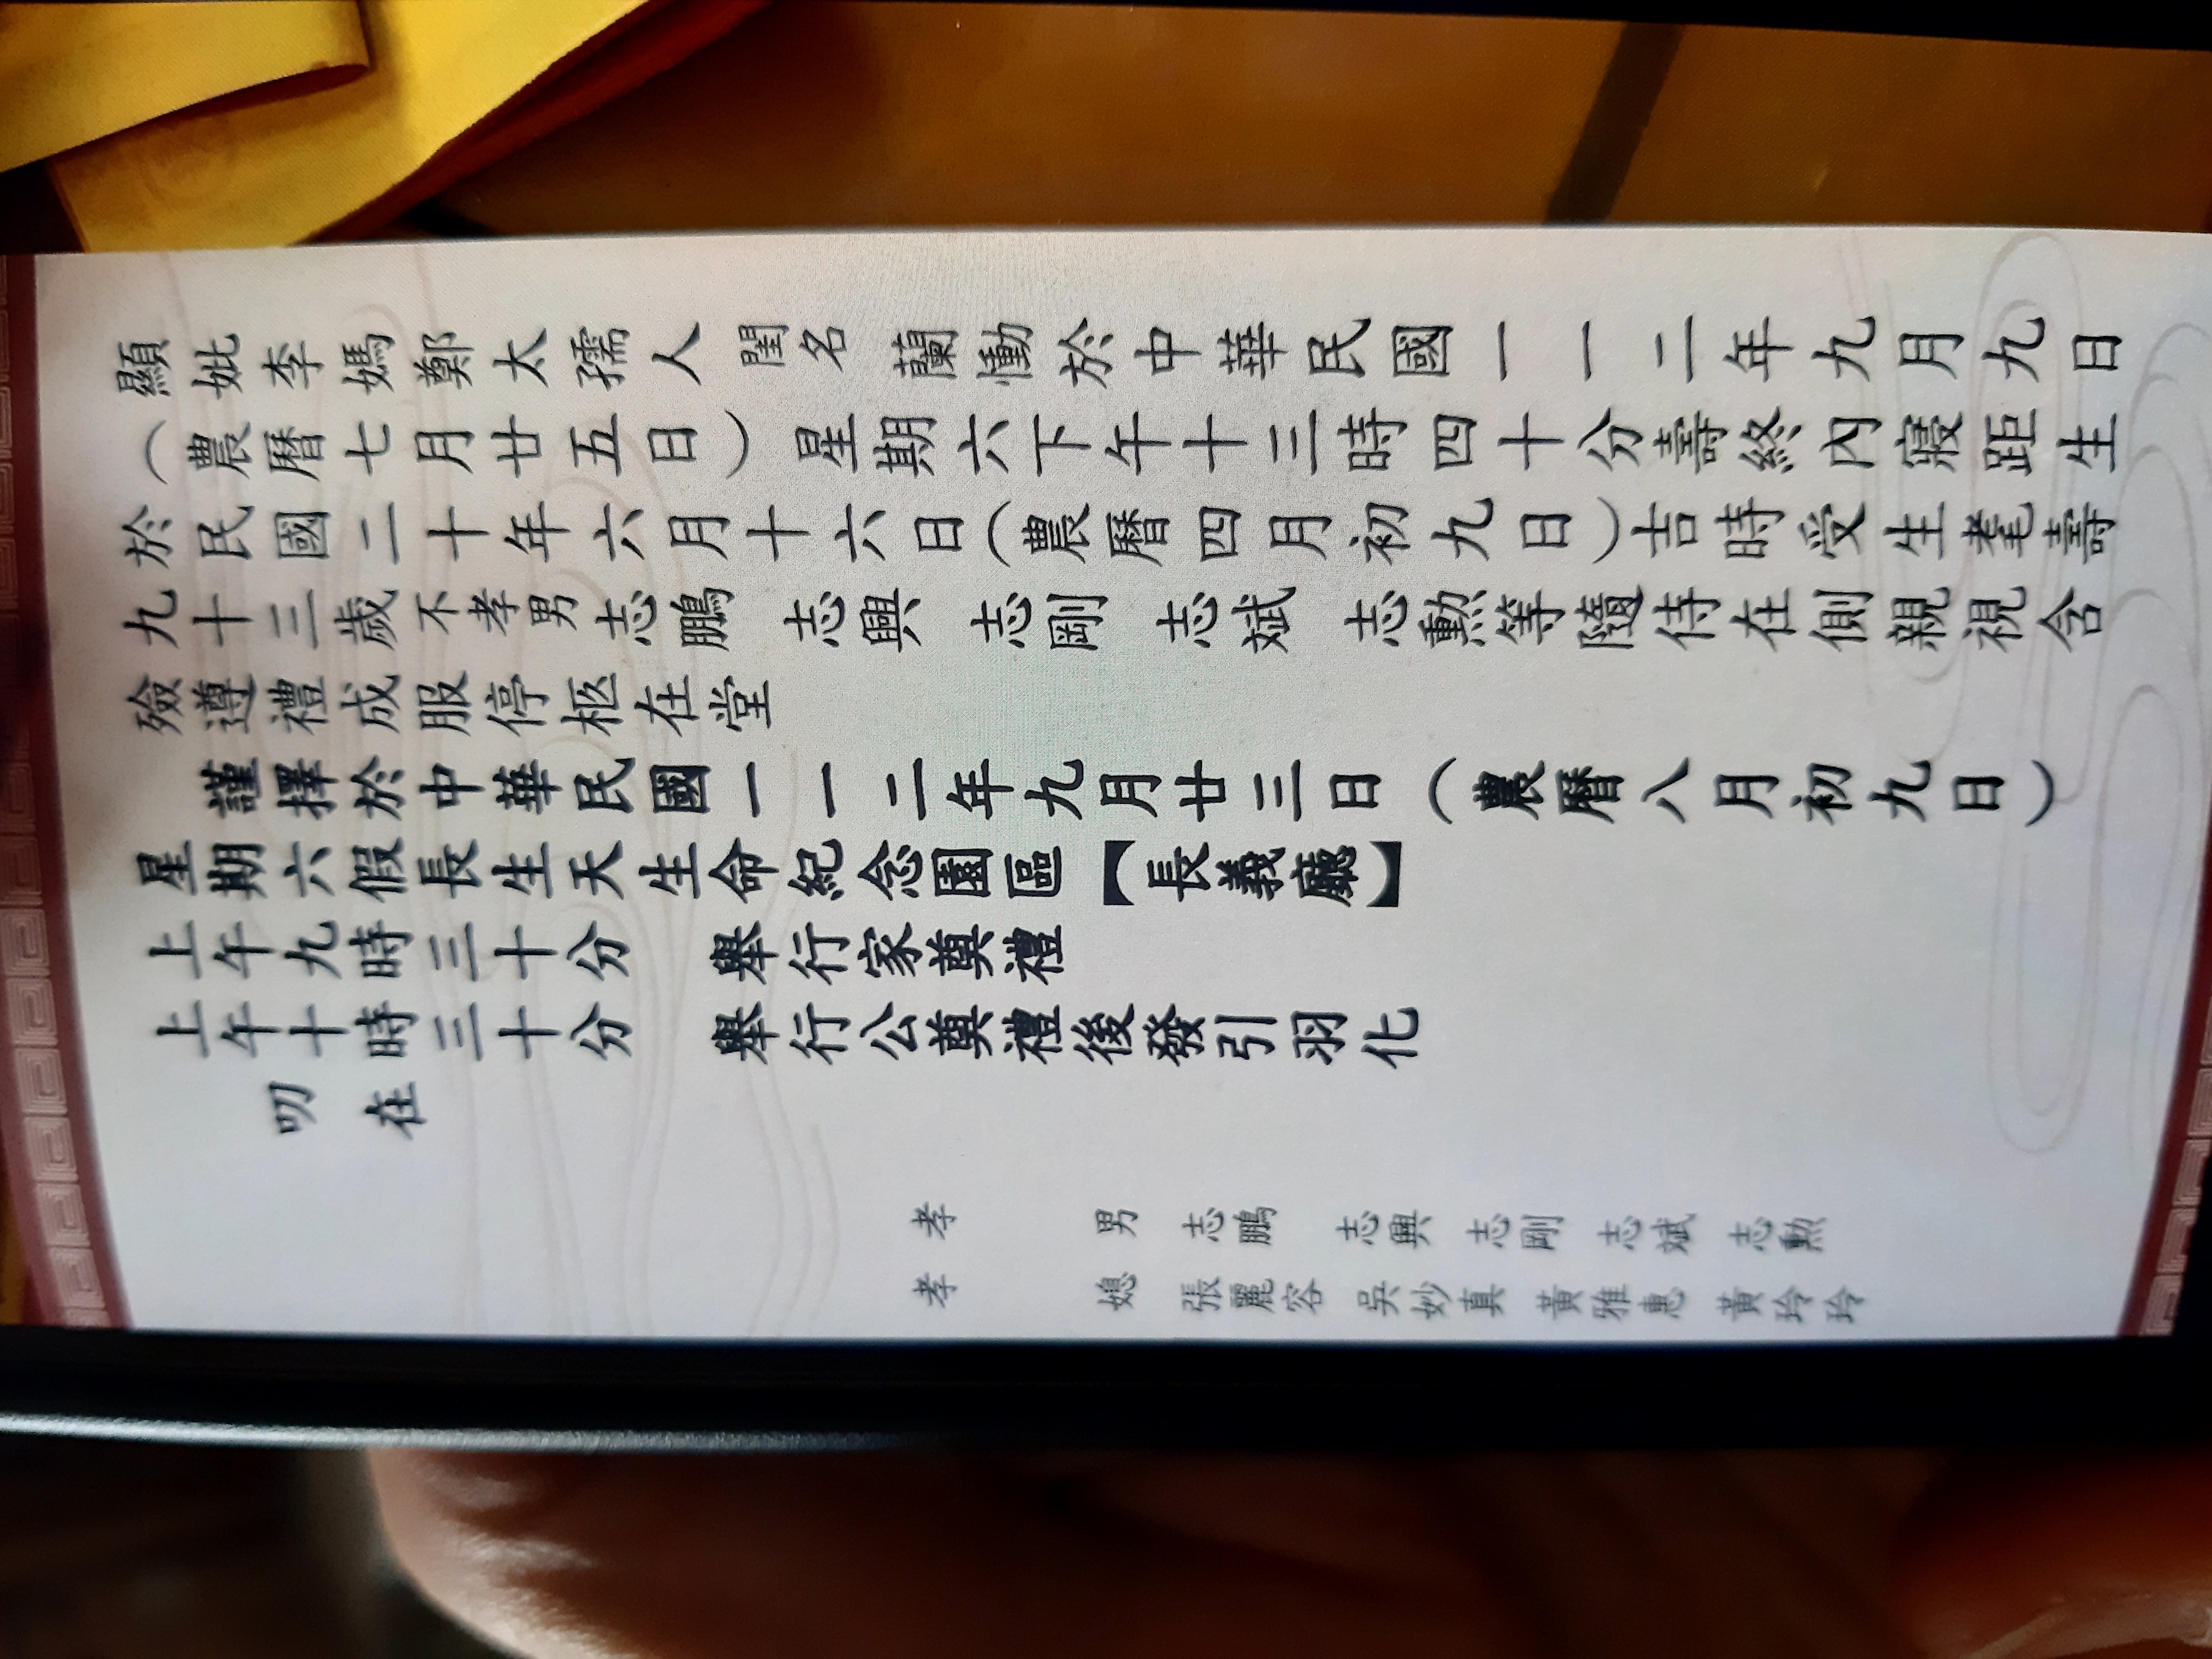 顯妣李媽鄭太孺人閨名蘭慟於中華民國一一二年九月九日
（農曆七月廿五日）星期六下午十三時四十分壽終內寢距生
於民國二十年六月十六日（農曆四月初九日）吉時受生耄壽
九十三歲不孝男志鵬 志興 志剛 志斌 志勲等隨侍在側親視含
殮遵禮成服停柩在堂
謹擇於中華民國一一二年九月廿三日（農曆八月初九日）
星期六假長生天生命紀念園區【長義廳】
上午九時三十分 舉行家奠禮
上午十時三十分 舉行公奠禮後發引羽化
叨在
孝男 志鵬 志興 志剛 志斌 志勲
孝媳 張麗容 吳妙真 黃雅惠 黃玲玲